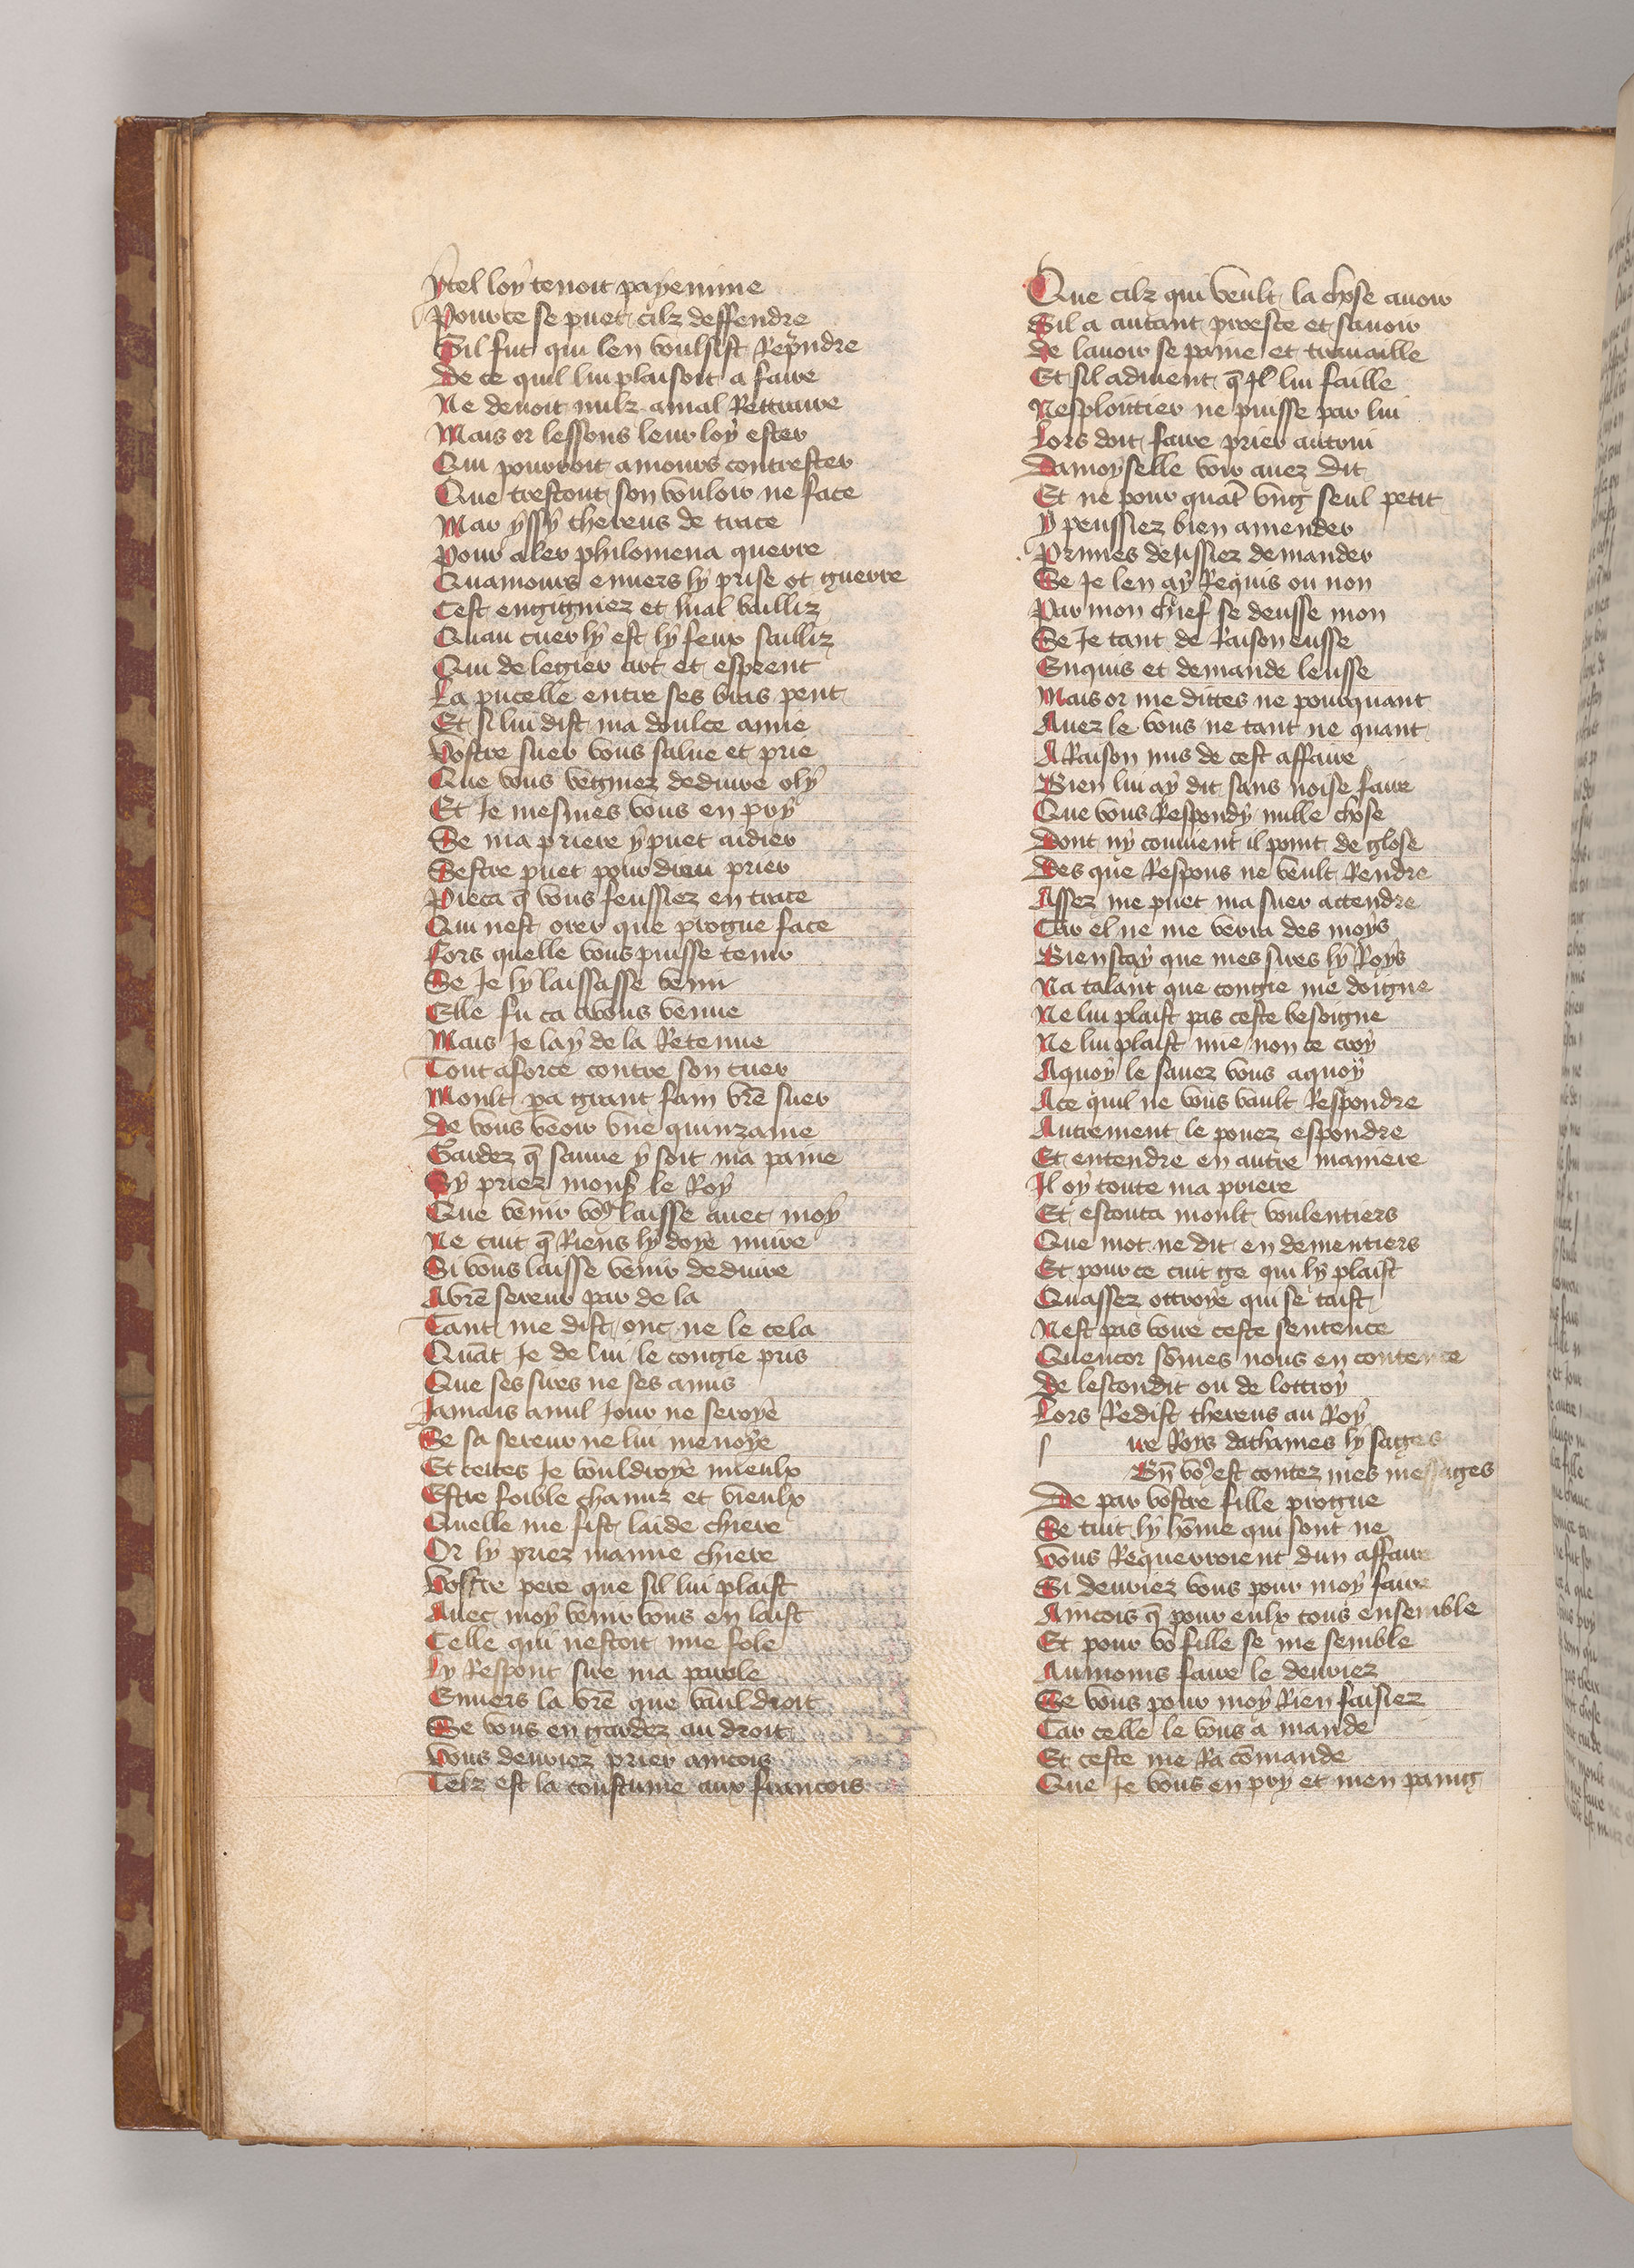 Ytel loy tenoit payennime
Pour ce se puet cilz deffendre
Sil fut qui len voulsist Reprendre
De ce quil lui plaisoit a faire
Ne devoit nulz a mal Rettraire
Mais or lessons leur loy ester
Qui pourroit amours contrester
Que trestout son vouloir ne face
Mar yssy thereus de trace
Pour aler philomena querre
Quamours envers ly prise ot guerre
Cest engigniez et mal bailliz
Quau cuer ly est ly feur sailliz
Qui de legier art et esprent
La pucelle entre ses bras pent
Et si lui dist ma doulce amie
Vostre suer vous salue et prie
Que vous vegniez deduire o ly
Et Je mesmes vous en pry
Se ma priere y puet aidier
Sestre puet pour dieu prier
Pieca q̄ vous feussiez en trace
Qui nest orer que progne face
Fors quelle vous puisse tenir
Se Je ly laissasse venir
Elle fu ca a vous venue
Mais Je lay de la Retenue
Tout a force contre son cuer
Moult pa grant fain vrē suer
De vous veoir vne quinzaine
Gardez q̄ sauue y soit ma paine
Sy priez mons le Roy
Que venir vo⁹ laisse auec moy
Ne cuit q̄ Riens ly doye nuire
Si vous laisse venir deduire
A vrē sereur par de la
Tant me dist onc ne le cela
Quāt Je de lui le congie pris
Que ses sires ne ses amis
Jamais a nul Jour ne seroye
Se sa sereur ne lui menoye
Et certes Je vouldroye mieulx
Estre foible chanuz et vieulx
Quelle me fist laide chiere
Or ly priez mamie chiere
Vostre pere que sil lui plaist
Auec moy venir vous en laist
Celle qui nestoit mie fole
Ly Respont sire ma parole
Enuers la vrē que vauldroit
Se vous en gardez au droit
Vous deuriez prier aincois
Telz est la coustume aux francois
Que cilz qui veult la chose auoir
Sil a autant proesce et sauoir
De lauoir se paine et trauaille
Et sil aduient q̄ Jl lui faille
Nesploittier ne puisse par lui
Lors doit faire prier autrui
Damoyselle voir auez dit
Et ne pour quāt vng seul petit
Y peussiez bien amender
Primes deussiez demander
Se Je len ay Requis ou non
Par mon chief se deusse mon
Se Je tant de Raison eusse
Enquis et demande leusse
Mais or me dittes ne pourquant
Auez le vous ne tant ne quant
A Raison mis de cest affaire
Bien lui ay dit sans noise faire
Que vous Respondy nulle chose
Dont ny conuient il point de glose
Des que Respons ne veult Rendre
Assez me puet ma suer attendre
Car el ne me verra des moys
Bien scay que mes sires ly Roys
Na talant que congie me doigne
Ne lui plaist pas ceste besoigne
Ne lui plaist mie non ce croy
A quoy le sauez vous a quoy
A ce quil ne vous vault Respondre
Autrement le pouez espondre
Et entendre en autre maniere
Il oy toute ma priere
Et escouta moult voulentiers
Que mot ne dit en dementiers
Et pour ce cuit ge qui ly plaist
Quassez ottroye qui se taist
Nest pas voire ceste sentence
Quencor sōmes nous en contence
De lescondit ou de lottroy
Lors Redist thereus au Roy
s ire Roys dathaines ly sages
Bn̄ vo⁹ est contez mes messages
De par vostre fille progne
Se tuit ly hōme qui sont ne
Vous Requerroient dun affaire
Si deuriez vous pour moy faire
Aincois q̄ pour eulx tous ensemble
Et pour vo fille se me semble
Aumoins faire le deuriez
Se vous pour moy Rien faisiez
Car celle le vous a mande
Et ceste me Ra cōmande
Que Je vous en pry et men paing